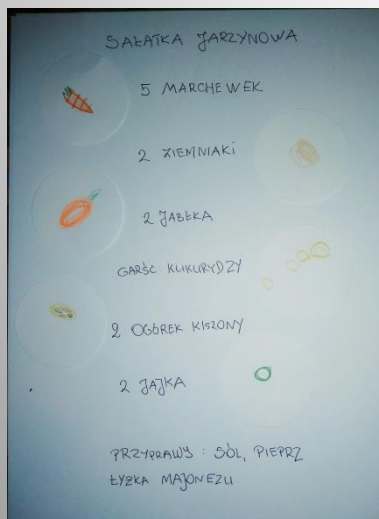 SAŁATKA JARZYNOWA
5 MARCHEWEK
2 ZIEMNIAKI
2 JABŁKA
GARŚĆ KUKURYDZY
2 OGÓREK KISZONY
2 JAJKA
PRZYPRAWY : SÓL, PIEPRZ
ŁYŻKA MAJONEZU